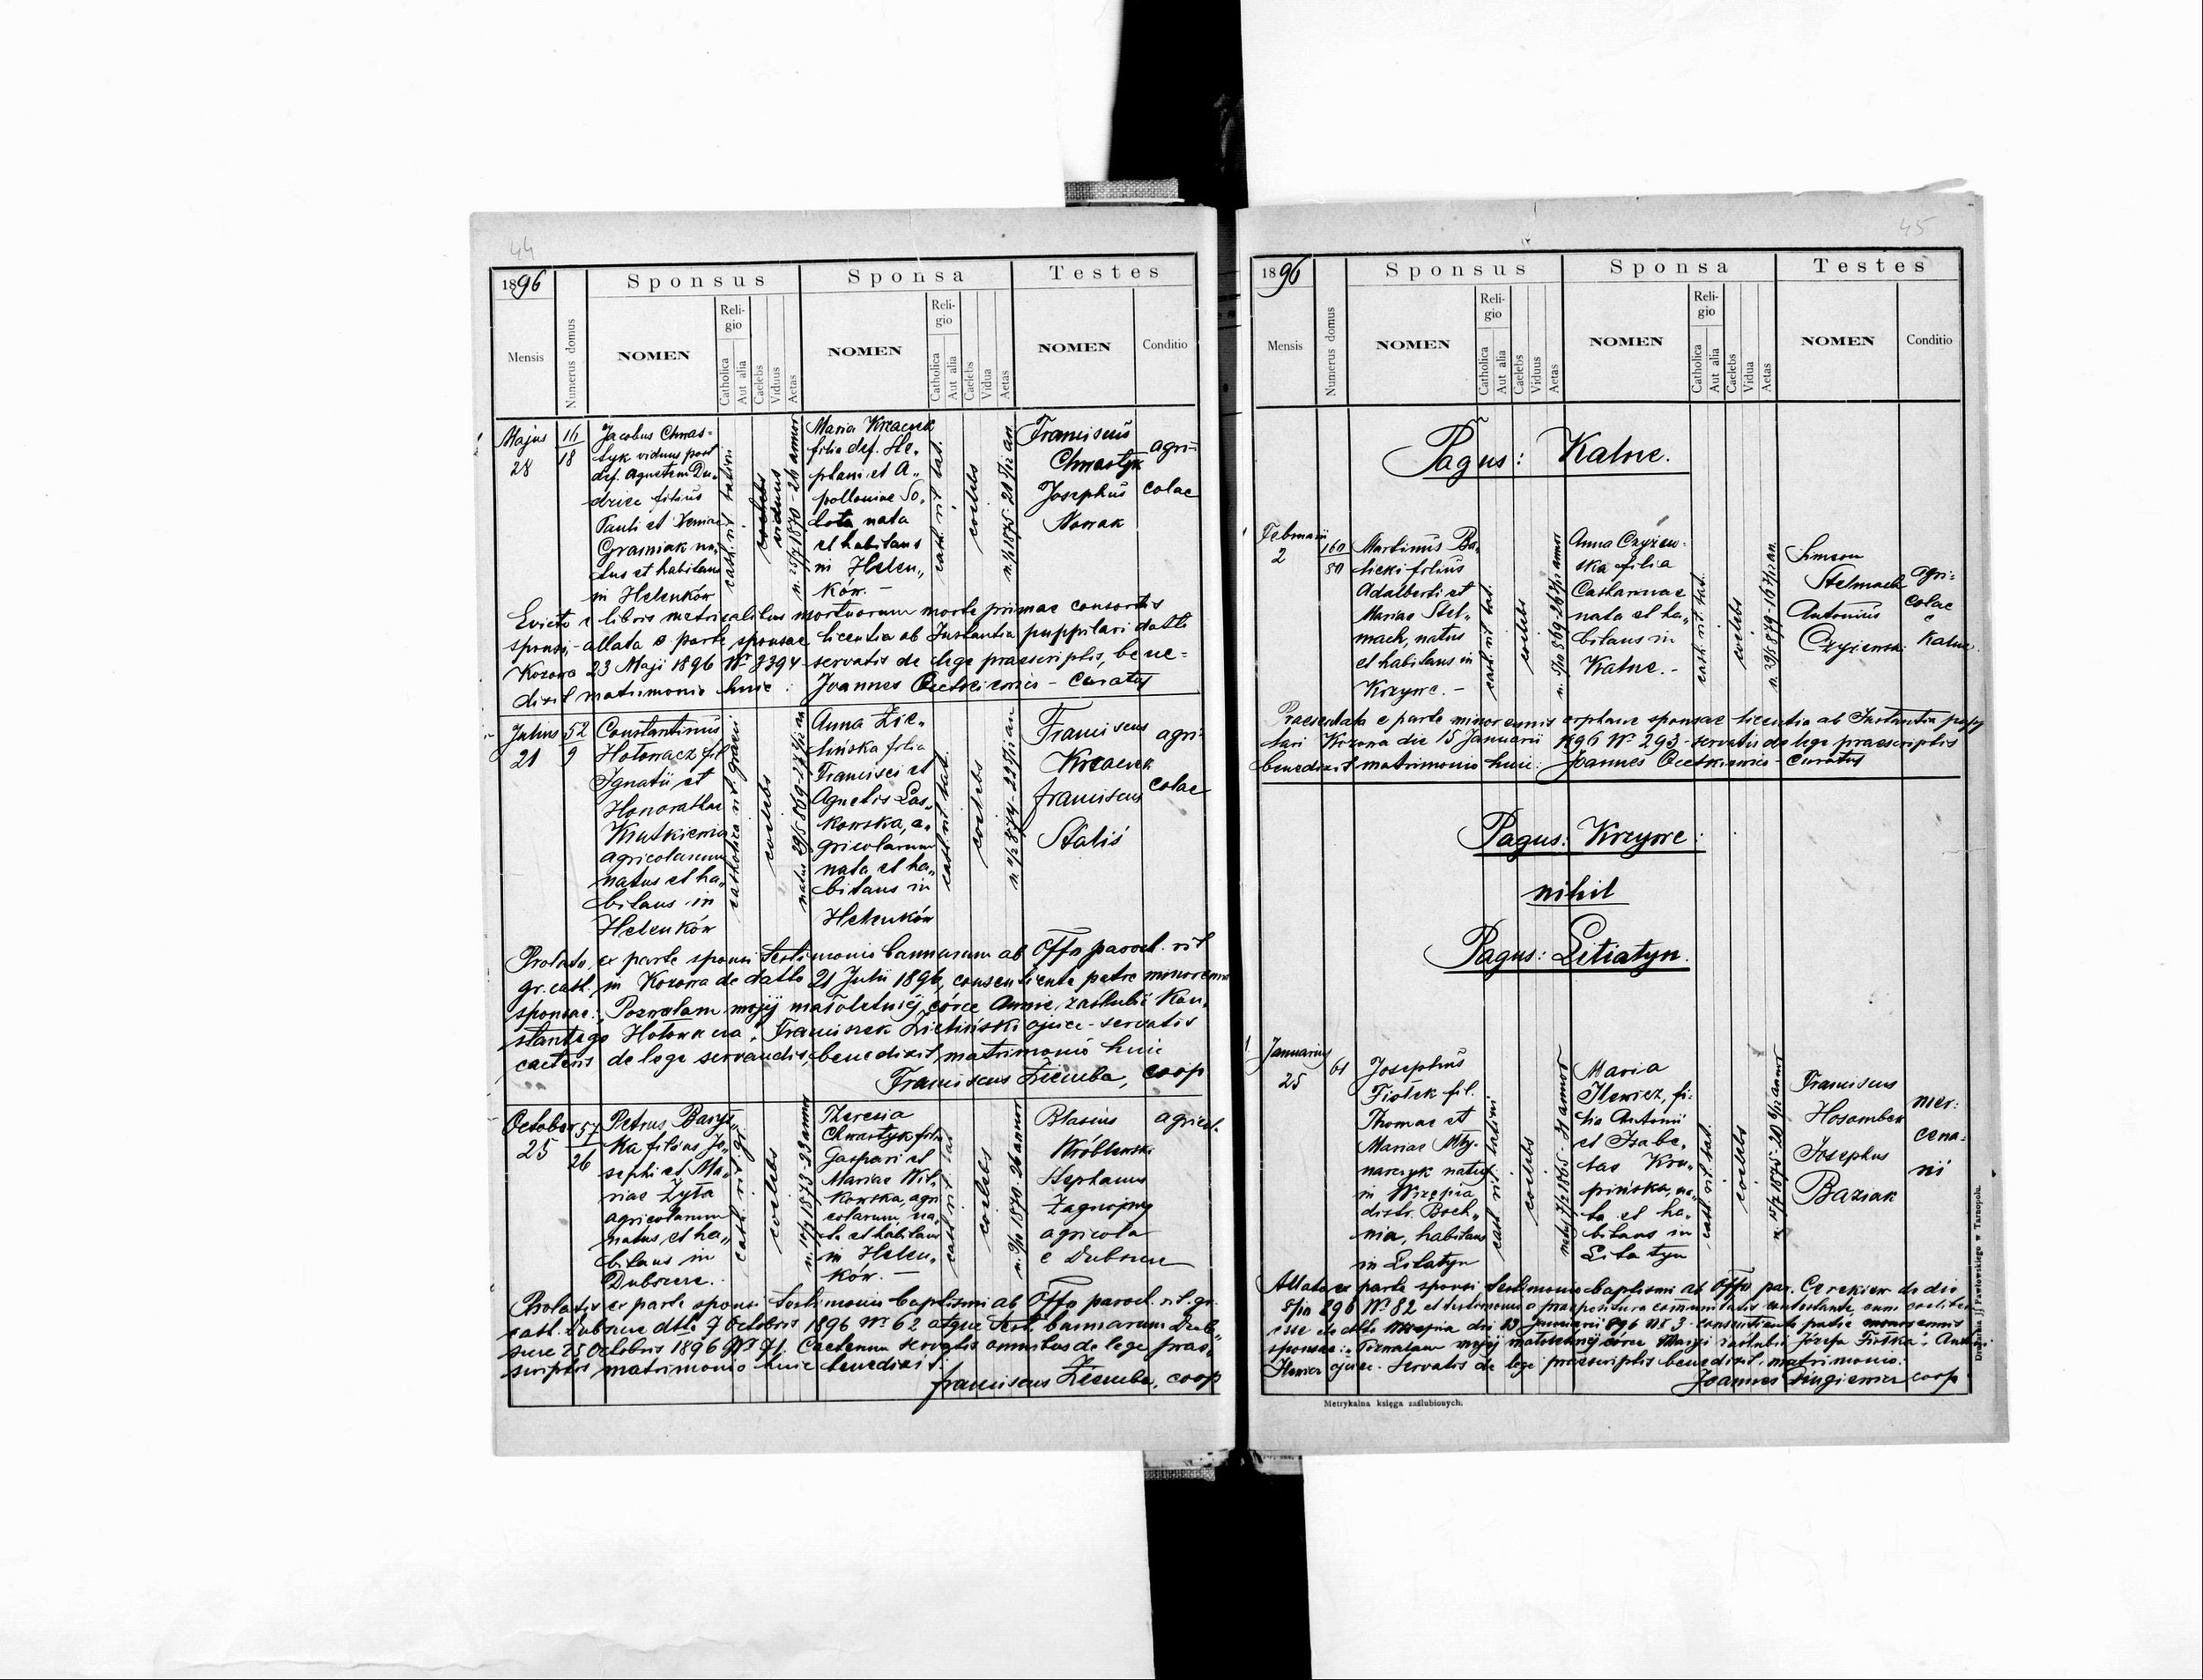 44
1896
Sponsus
Sponsa
Testes
Mensis
Numerus domus
NOMEN
Religio
Catholica
Aut alia
Caelebs
Viduus
Aetas
NOMEN
Religio
Catholica
Aut alia
Caelebs
Vidua
Aetas
NOMEN
Conditio
Majus
28
16
18
Jacobus Chwas-
tyk viduus post
def. Agnetem Du-
filius
Pauli et Xeniae
Grasniak na-
tus et habitans
in Helenków
cath. rit. latini
coelebs
viduus
n. 25/7 1870 - 26 annor
Maria Krzaczek
filia def. Ste-
phani et A-
polloniae So-
bota, nata
et habitans
in Helen-
ków. -
cath. rit. lat.
coelebs
Franciscus
Chwastyk
Josephus
Nowak
agri-
colae
Evicto e libris metricalibus mortuorum morte primae consortis
sponsi, - allata e parte sponsae licentia ab Instantia puppilari datto
Kozowa 23 Maji 1896 Nr 3394 - servatis de lege praescriptis, bene-
dixit matrimonio huic : Joannes - Curatus
Julius
21
52
9
Constantinus
Hołowacz fil.
Ignatii et
Honorathae
Krutkiewicz
agricolarum
natus et ha-
bitans in
Helenków
catholica rit. graeci
coelebs
Anna Zie-
lińska filia
Francisci et
Agnetis Las-
kowska, a-
gricolarum
nata et ha-
bitans in
Helenków
cath. rit. lat.
coelebs
Franciscus
Krzaczek
Franciscus
Staliś
agri-
colae
Prolato ex parte sponsi testimonio bannorum ab Offo paroch. rit.
gr. cath. in Kozowa de datto 21 Julii 1896, consentiente patre minorennis
sponsae: "Pozwalam mojéj małoletniéj córce Annie zaślubić Kon-
stantego Hołowacza", Franciszek Zieliński ojciec - servatis
caeteris de lege servandis, benedixit matrimonio huic
Franciscus Ziemba, coop
October
25
57
26
Petrus Barys-
ka filius Jo-
sephi et Ma-
riae Zyta
agricolarum
natus et ha-
bitans in
Dubszcze.
cath. rit. gr.
coelebs
Theresia
Chwastyk filia
Gaspari et
Mariae Wit-
kowska, agri-
colarum, na-
ta et habitans
in Helen-
ków. -
cath. rit. lat.
coelebs
Blasius
Wróblewski
Stephanus
Zagrojny
agricola
e Dubszcze
agricol.
Prolatis ex parte sponsi testimonio baptismi ab Offo paroch. rit. gr.
cath. Dubszcze dtto 9 Octobris 1896 Nr 62 atque test. bannorum Dub-
szcze 25 Octobris 1896 Nr 71. Caeterum servatis omnibus de lege prae-
scriptis matrimonio huic benedixit:
Franciscus Ziemba, coop
45
1896
Sponsus
Sponsa
Testes
Mensis
Numerus domus
NOMEN
Religio
Catholica
Aut alia
Caelebs
Viduus
Aetas
NOMEN
Religio
Catholica
Aut alia
Caelebs
Vidua
Aetas
NOMEN
Conditio
Pagus: Kalne.
1
Februarii
2
160
80
Martinus Ba-
licki filius
Adalberti et
Mariae Stel-
mach, natus
et habitans in
Krzywe. -
cath. rit. lat.
coelebs
Anna Czyżew-
ska filia
Catharinae
nata et ha-
bitans in
Kalne. -
cath. rit. lat.
coelebs
Simeon
Stelmach
Antonius
Czyżewski
agri-
colae
e
Kalne
Praesentata e parte minorennis orphanae sponsae licentia ab Instantia pupp
lari Kozowa die 15 Januarii 896 Nr 293 - servatis de lege praescriptis
benedixit matrimonio huic: Joannes - Curatus
Pagus: Krzywe:
nihil
Pagus: Litiatyn.
1
Januarius
25
61
Josephus
Fiołek fil.
Thomae et
Mariae Mły-
narczyk natus
in Wrzępia
distr. Boch-
nia, habitans
in Litatyn
cath. rit. latini
coelebs
Maria
Ilewicz, fi-
lia Antonii
et Isabe-
lae Kru-
pińska, na-
ta et ha-
bitans in
Litatyn
cath. rit. lat.
coelebs
Franciscus
Hosambek
Josephus
Baziak
mer-
cena-
rii
Allato ex parte sponsi testimonio baptismi ab Offo par. Cerekiew de die
896 Nr 82 et testimonio a praepositura communitatis contestante, eum coelibem
esse de dtto Wrzępia die 13 Januarii 896 Nr 3 - consentiente patre minorennis
sponsae: "Pozwalam mojéj małoletniéj córce Maryi zaślubić Józefa Fiołka". Anton
Ilewicz ojciec. Servatis de lege praescriptis benedixit matrimonio:
Joannes coop
Metrykalna księga zaślubionych.
Drukarnia J. Pawłowskiego w Tarnopolu.